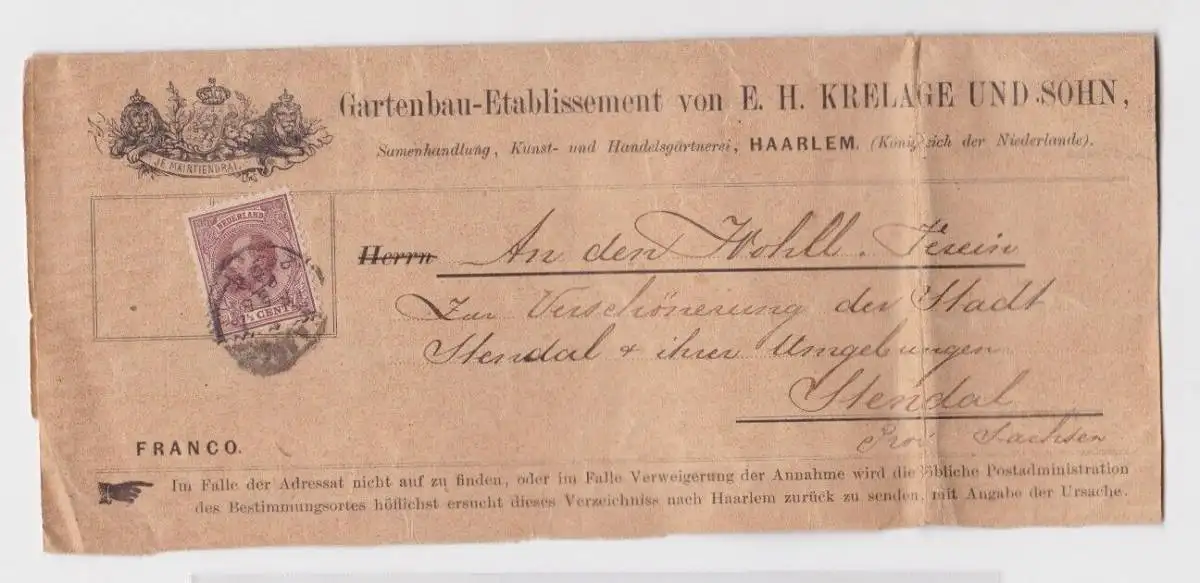 Gartenbau-Etablissement von E. H. KRELAGE UND SOHN,
Samenhandlung, Kunst- und Handelsgärtnerei, HAARLEM. (Königreich der Niederlande).
JE MAINTIENDRAI
NEDERLAND
CENT
Herrn An den Wohll. Verein
Zur Verschönerung der Stadt
Stendal & ihrer Umgebungen
Stendal
Prov Sachsen
FRANCO.
Im Falle der Adressat nicht auf zu finden, oder im Falle Verweigerung der Annahme wird die löbliche Postadministration
des Bestimmungsortes höflichst ersucht dieses Verzeichniss nach Haarlem zurück zu senden, mit Angabe der Ursache.